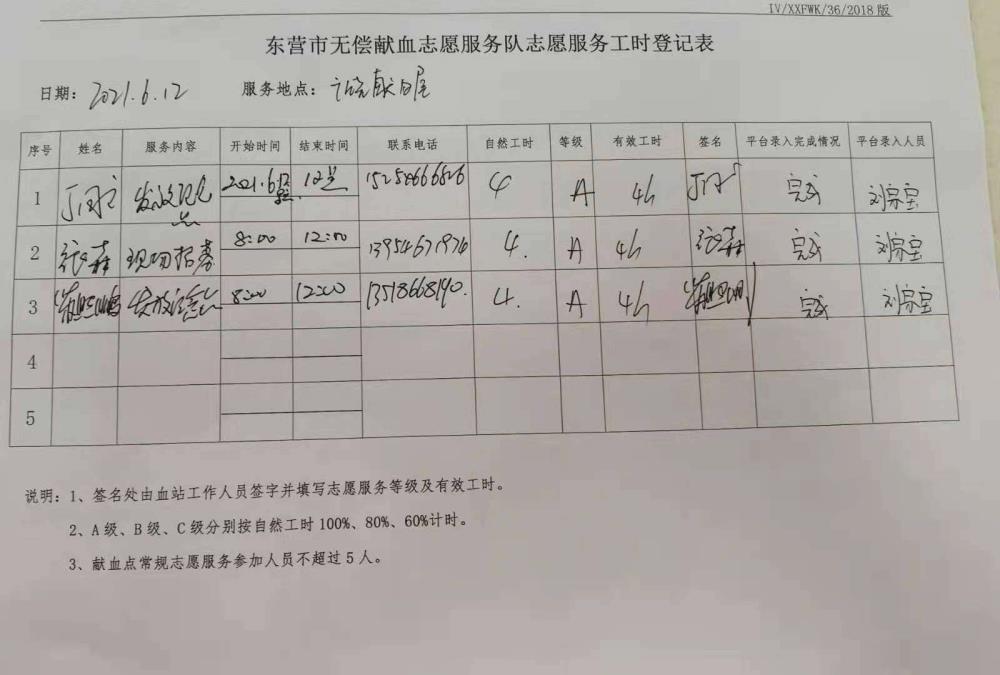 IV/XXFWK/36/2018版
东营市无偿献血志愿服务队志愿服务工时登记表
日期：2021.6.12 服务地点：献血屋
序号 姓名 服务内容 开始时间 结束时间 联系电话 自然工时 等级 有效工时 签名 平台录入完成情况 平台录入人员
1 2021.6.12 12点 4 A 4h 完成 刘宗宝
2 张森 现场招募 8:00 12:00 13954671976 4. A 4h 张森 完成 刘宗宝
3 8:00 12:00 13518668190. 4. A 4h 完成 刘宗宝
4
5
说明：1、签名处由血站工作人员签字并填写志愿服务等级及有效工时。
2、A级、B级、C级分别按自然工时100%、80%、60%计时。
3、献血点常规志愿服务参加人员不超过5人。